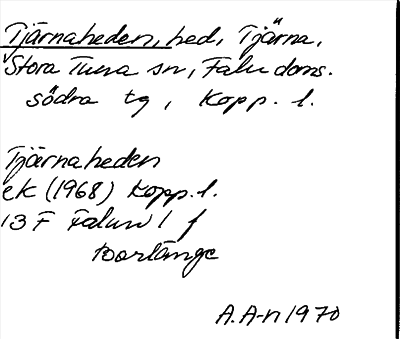 Tjärnaheden, hed, Tjärna,
Stora Tuna sn, Falu doms.
södra tg, Kopp. l.
Tjärnaheden
ek (1968) Kopp. l.
13 F Falun 1 f
Borlänge
A.A-n 1970